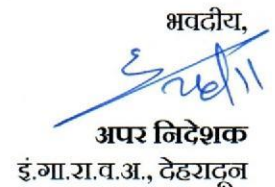 भवदीय,
अपर निदेशक
इं.गा.रा.व.अ., देहरादून